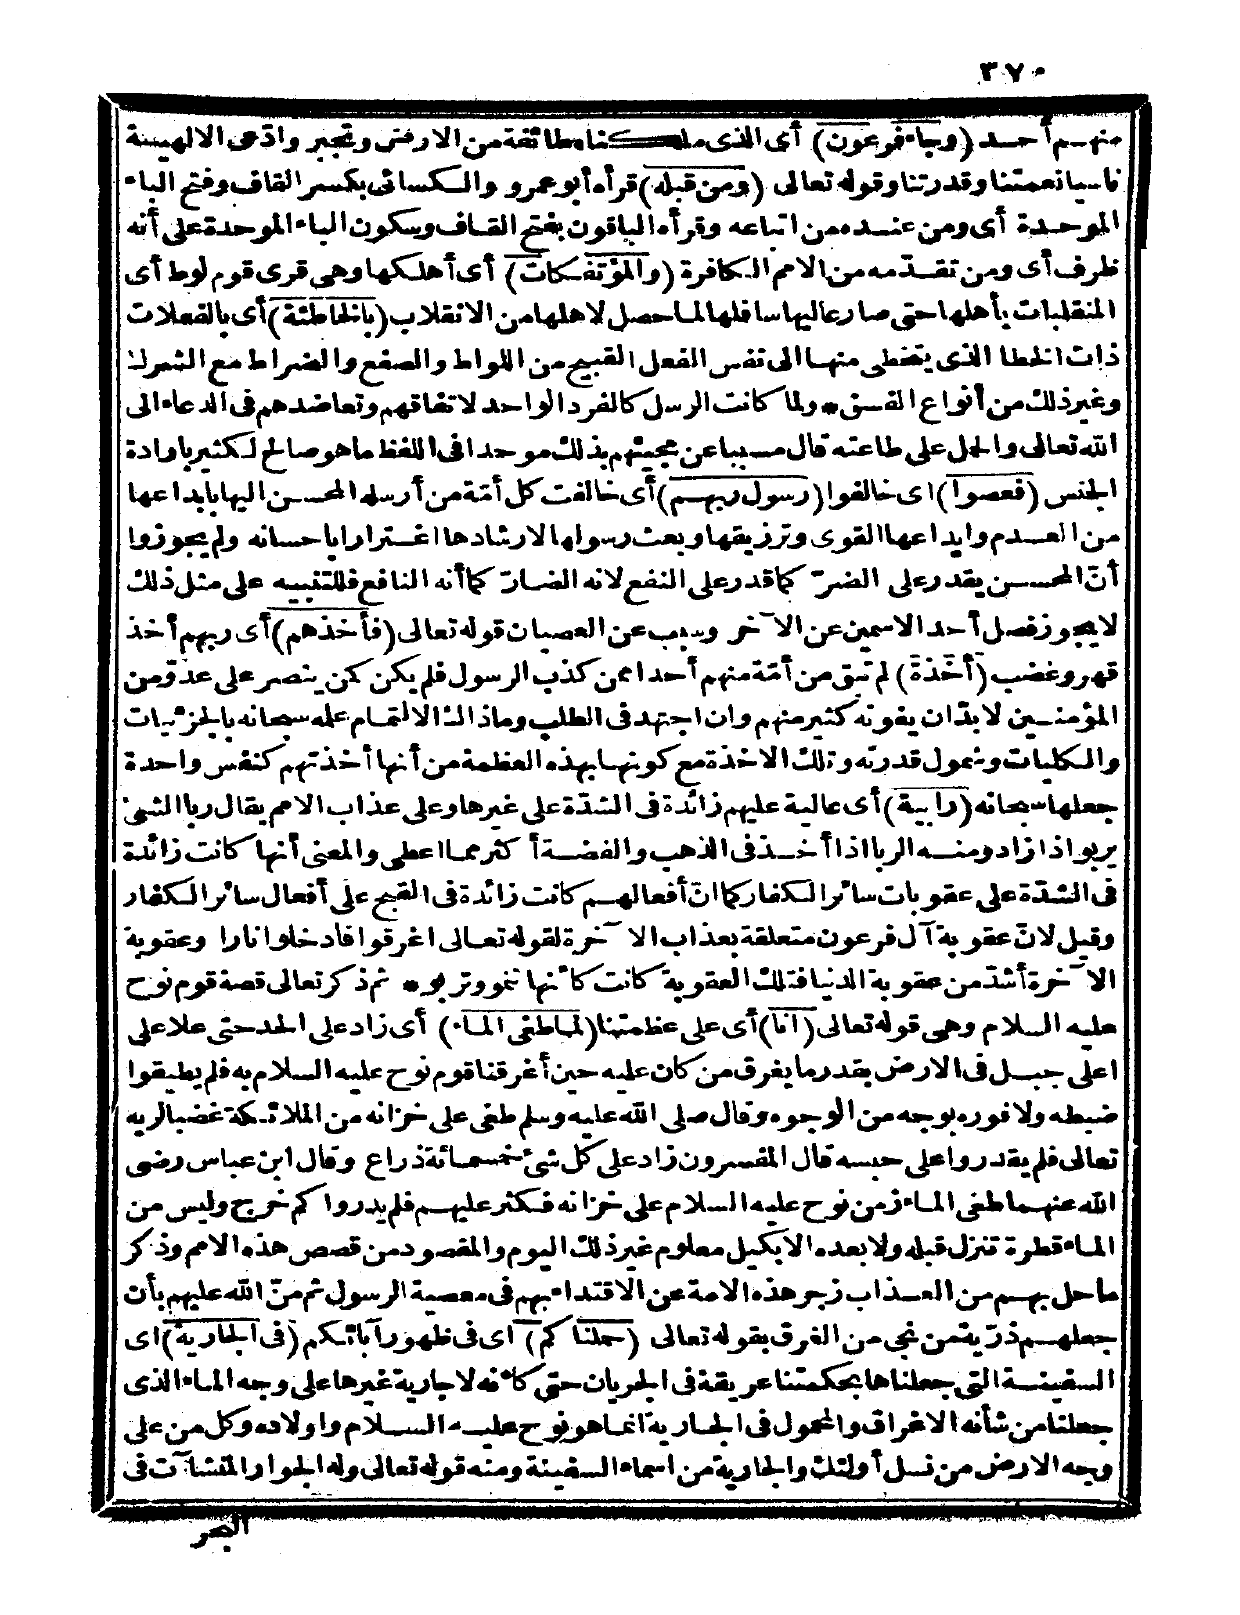 ٣٧٠
منهم أحد (وجاء فرعون) أى الذى ملكناه طائفة من الارض وتجبر وادّعى الالهية
ناسيا نعمتنا وقدرتنا وقوله تعالى (ومن قبله) قرأه أبو عمرو والكسائى بكسر القاف وفتح الباء
الموحدة أى ومن عنده من اتباعه وقرأه الباقون بفتح القاف وسكون الباء الموحدة على أنه
ظرف أى ومن تقدّمه من الامم الكافرة (والمؤتفكات) أى أهلكها وهى قرى قوم لوط أى
المنقلبات بأهلها حتى صار عاليها سافلها لما حصل لاهلها من الانقلاب (بالخاطئة) أى بالفعلات
ذات الخطا الذى يتخطى منها الى نفس الفعل القبيح من اللواط والصفع والضراط مع الشرك
وغير ذلك من أنواع الفسق * ولما كانت الرسل كالفرد الواحد لاتفاقهم وتعاضدهم فى الدعاء الى
الله تعالى والحمل على طاعته قال مسببا عن مجيئهم بذلك موحدا فى اللفظ ما هو صالح لكثير بارادة
الجنس (فعصوا) اى خالفوا (رسول ربهم) أى خالفت كل أمّة من أرسله المحسن اليها بابداعها
من العدم وايداعها القوى وترزيقها وبعث رسولها لارشادها اغترارا باحسانه ولم يجوزوا
أنّ المحسن يقدر على الضرّ كما قدر على النفع لانه الضارّ كما أنه النافع فللتنبيه على مثل ذلك
لا يجوز فصل أحد الاسمين عن الآخر وسبب عن العصيان قوله تعالى (فأخذهم) أى ربهم أخذ
قهر وغضب (أخذة) لم تبق من أمّة منهم أحدا ممن كذب الرسول فلم يكن كمن ينصر على عدوّ من
المؤمنين لا بدّ ان يفوته كثير منهم وان اجتهد فى الطلب وما ذاك الا لتمام علمه سبحانه بالجزئيات
والكليات وشمول قدرته وتلك الاخذة مع كونها بهذه العظمة من أنها أخذتهم كنفس واحدة
جعلها سبحانه (رابية) أى عالية عليهم زائدة فى الشدّة على غيرها وعلى عذاب الامم يقال ربا الشئ
يربو اذا زاد ومنه الربا اذا أخذ فى الذهب والفضة أكثر مما اعطى والمعنى أنها كانت زائدة
فى الشدّة على عقوبات سائر الكفار كما انّ أفعالهم كانت زائدة فى القبح على أفعال سائر الكفار
وقيل لانّ عقوبة آل فرعون متعلقة بعذاب الآخرة لقوله تعالى اغرقوا فادخلوا نارا وعقوبة
الآخرة أشدّ من عقوبة الدنيا فتلك العقوبة كانت كأنها تنمو وتربو * ثم ذكر تعالى قصة قوم نوح
عليه السلام وهى قوله تعالى (انا) أى على عظمتنا (لما طغى الماء) أى زاد على الحد حتى علا على
اعلى جبل فى الارض بقدر ما يغرق من كان عليه حين أغرقنا قوم نوح عليه السلام به فلم يطيقوا
ضبطه ولا فوره بوجه من الوجوه وقال صلى الله عليه وسلم طغى على خزانه من الملائكة غضبا لربه
تعالى فلم يقدروا على حبسه قال المفسرون زاد على كل شئ خمسمائة ذراع وقال ابن عباس رضى
الله عنهما طغى الماء زمن نوح عليه السلام على خزانه فكثر عليهم فلم يدروا كم خرج وليس من
الماء قطرة تنزل قبله ولا بعده الا بكيل معلوم غير ذلك اليوم والمقصود من قصص هذه الامم وذكر
ما حل بهم من العذاب زجر هذه الامة عن الاقتداء بهم فى معصية الرسول ثم منّ الله عليهم بأن
جعلهم ذرّية من نجى من الغرق بقوله تعالى (حملناكم) اى فى ظهور آبائكم (فى الجارية) اى
السفينة التى جعلناها بحكمتنا عريقة فى الجريان حتى كأنه لا جارية غيرها على وجه الماء الذى
جعلنا من شأنه الاغراق والمحمول فى الجارية انما هو نوح عليه السلام واولاده وكل من على
وجه الارض من نسل أولئك والجارية من اسماء السفينة ومنه قوله تعالى وله الجوار المنشآت فى
البحر